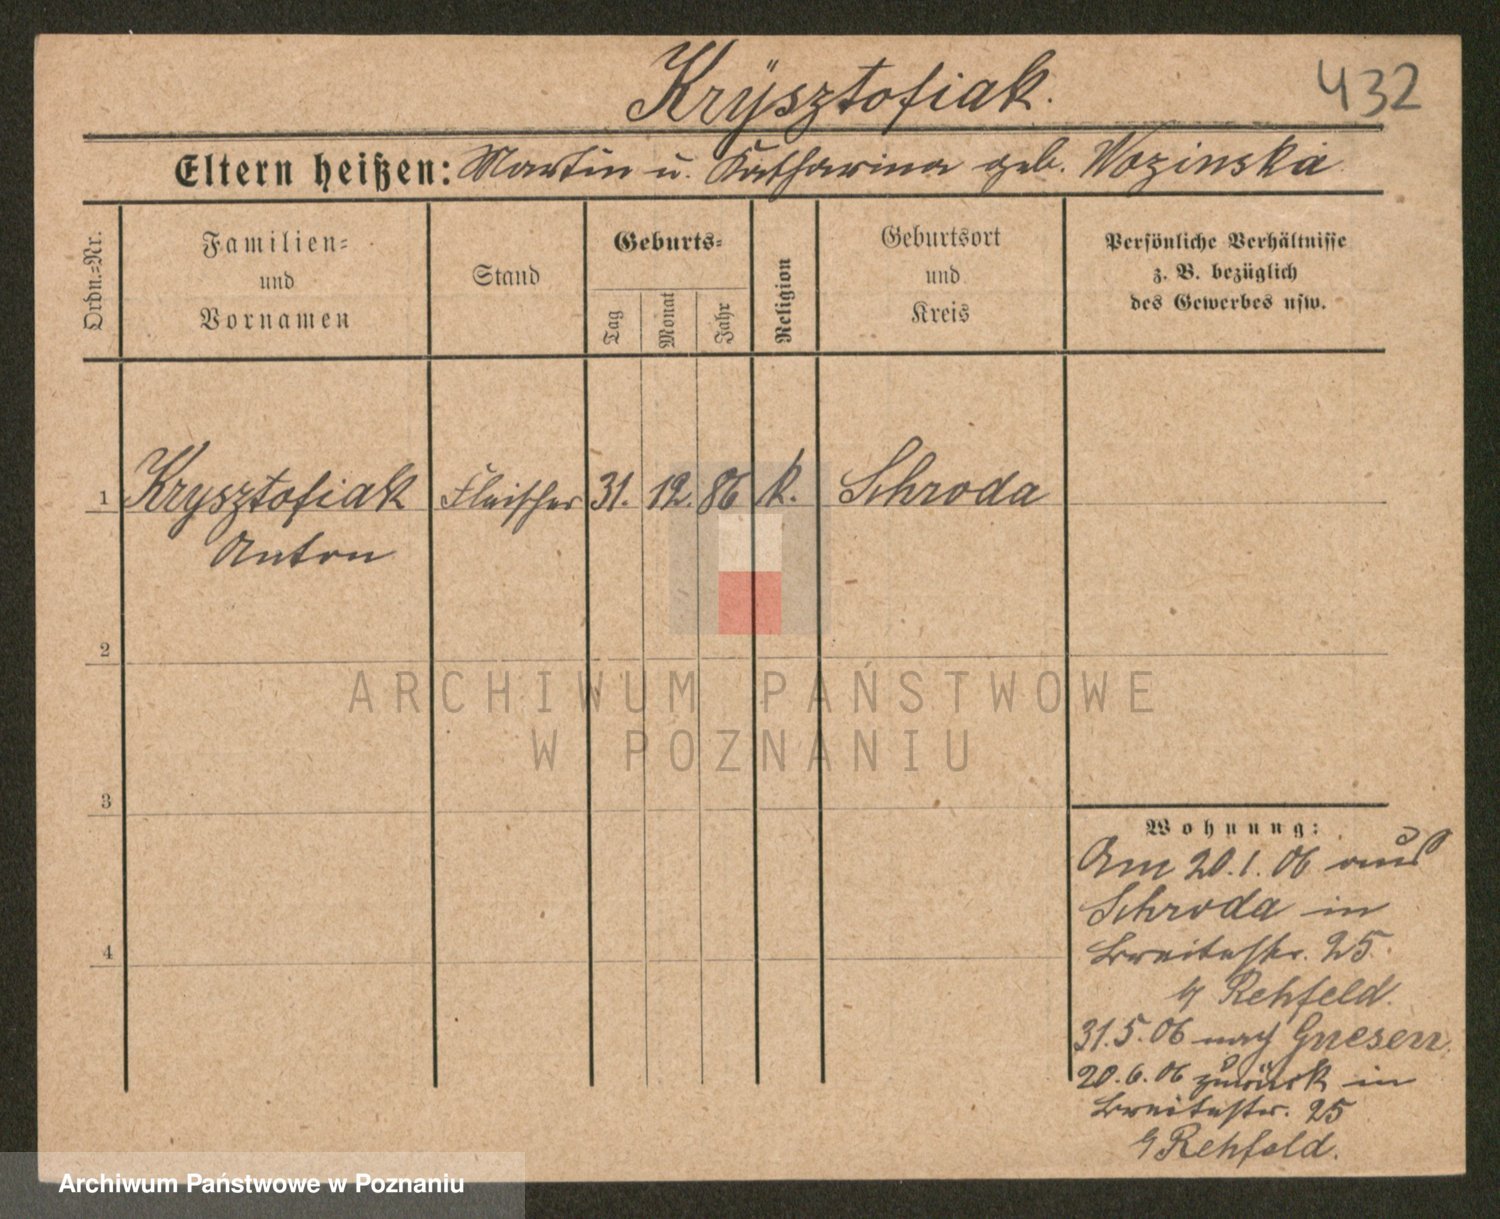 Krÿsztofiak.
432
Eltern heißen: Martin u. Katharina geb. Wozinska
Ordn.=Nr.
Familien=
und
Vornamen
Stand
Geburts=
Tag
Monat
Jahr
Religion
Geburtsort
und
Kreis
Persönliche Verhältnisse
z. B. bezüglich
des Gewerbes usw.
1 Krysztofiak Fleischer 31. 12. 86 k. Schroda
Anton
2
3
4
Wohnung:
Am 20.1.06 aus
Schroda in
Breitestr. 25.
Rehfeld.
31.5.06 nach Gnesen.
20.6.06 zurück in
Breitestr. 25
Rehfeld.
ARCHIWUM PAŃSTWOWE
W POZNANIU
Archiwum Państwowe w Poznaniu